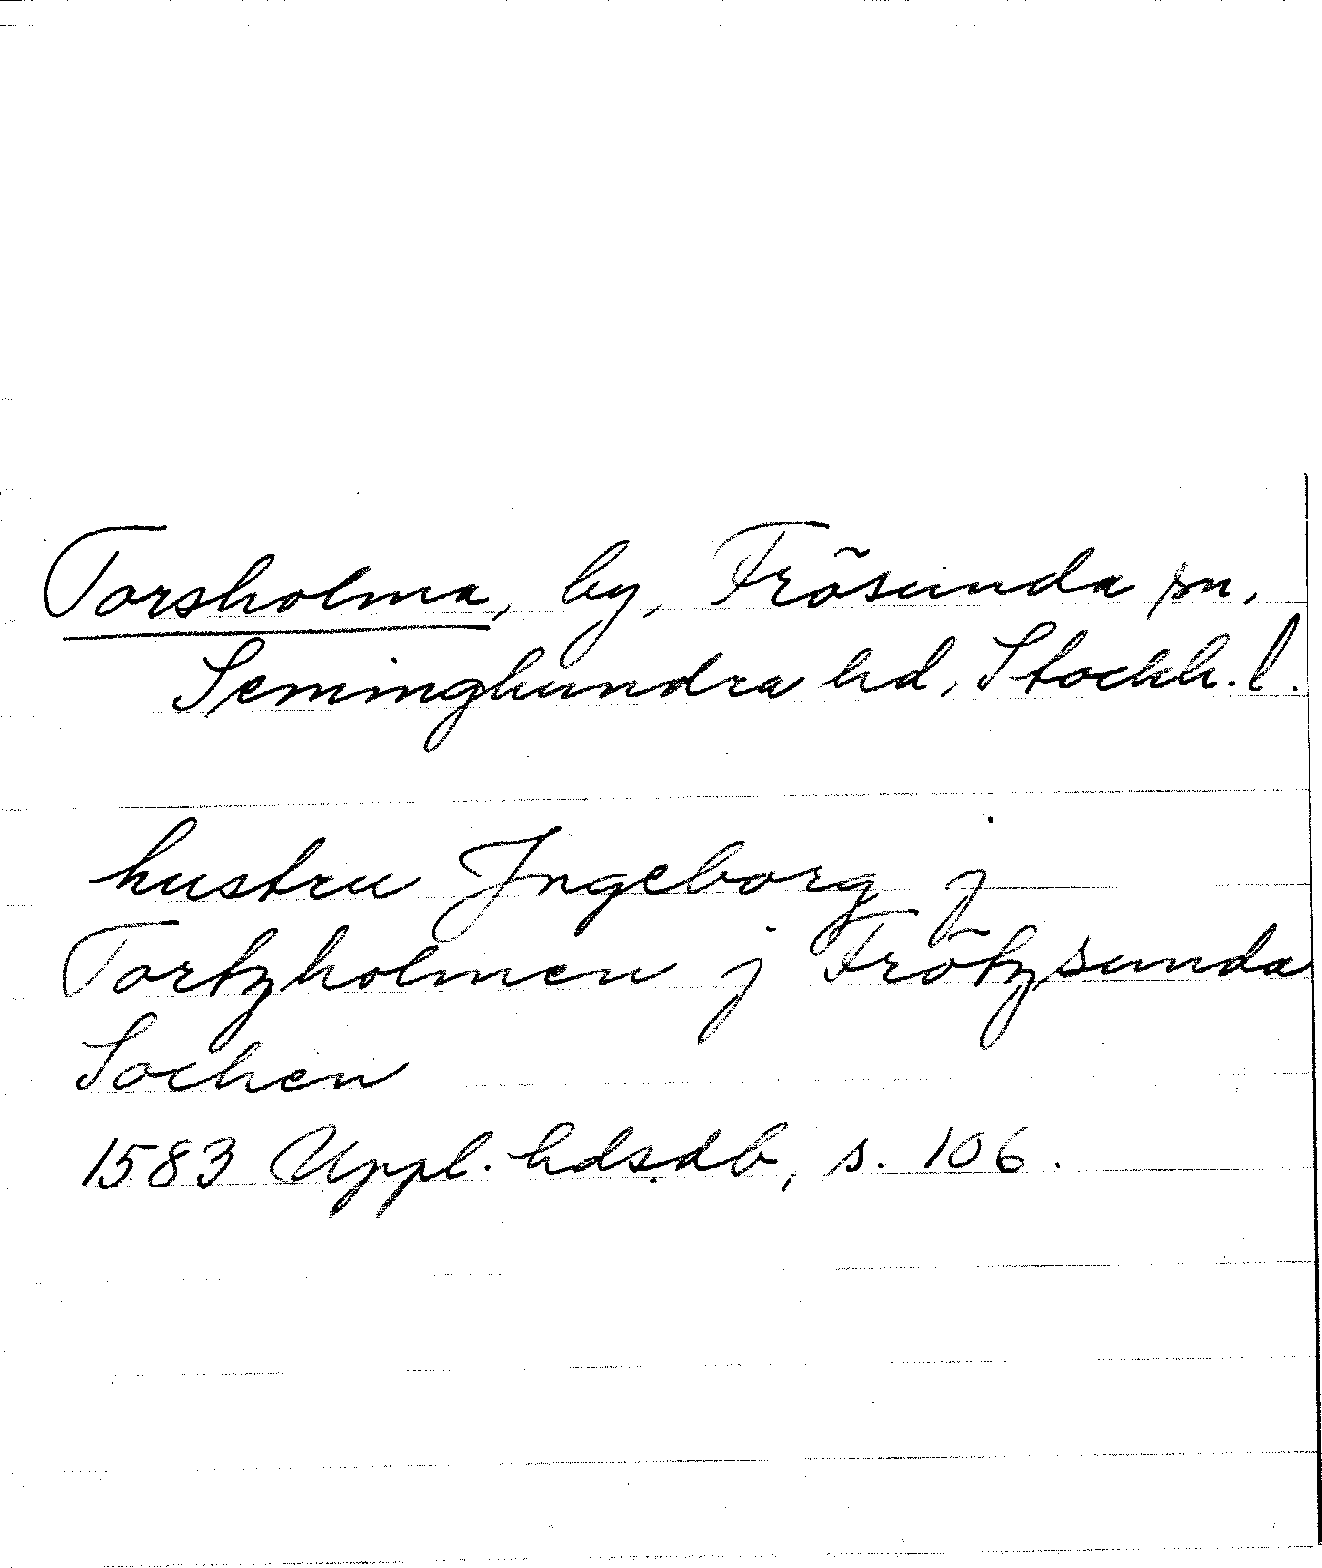 Torsholma, by, Frösunda sn,
Seminghundra hd, Stockh. l.
hustru Ingeborg j
Tortzholmen j Frötzsunda
Sochen
1583 Uppl. hdsdb, s. 106.